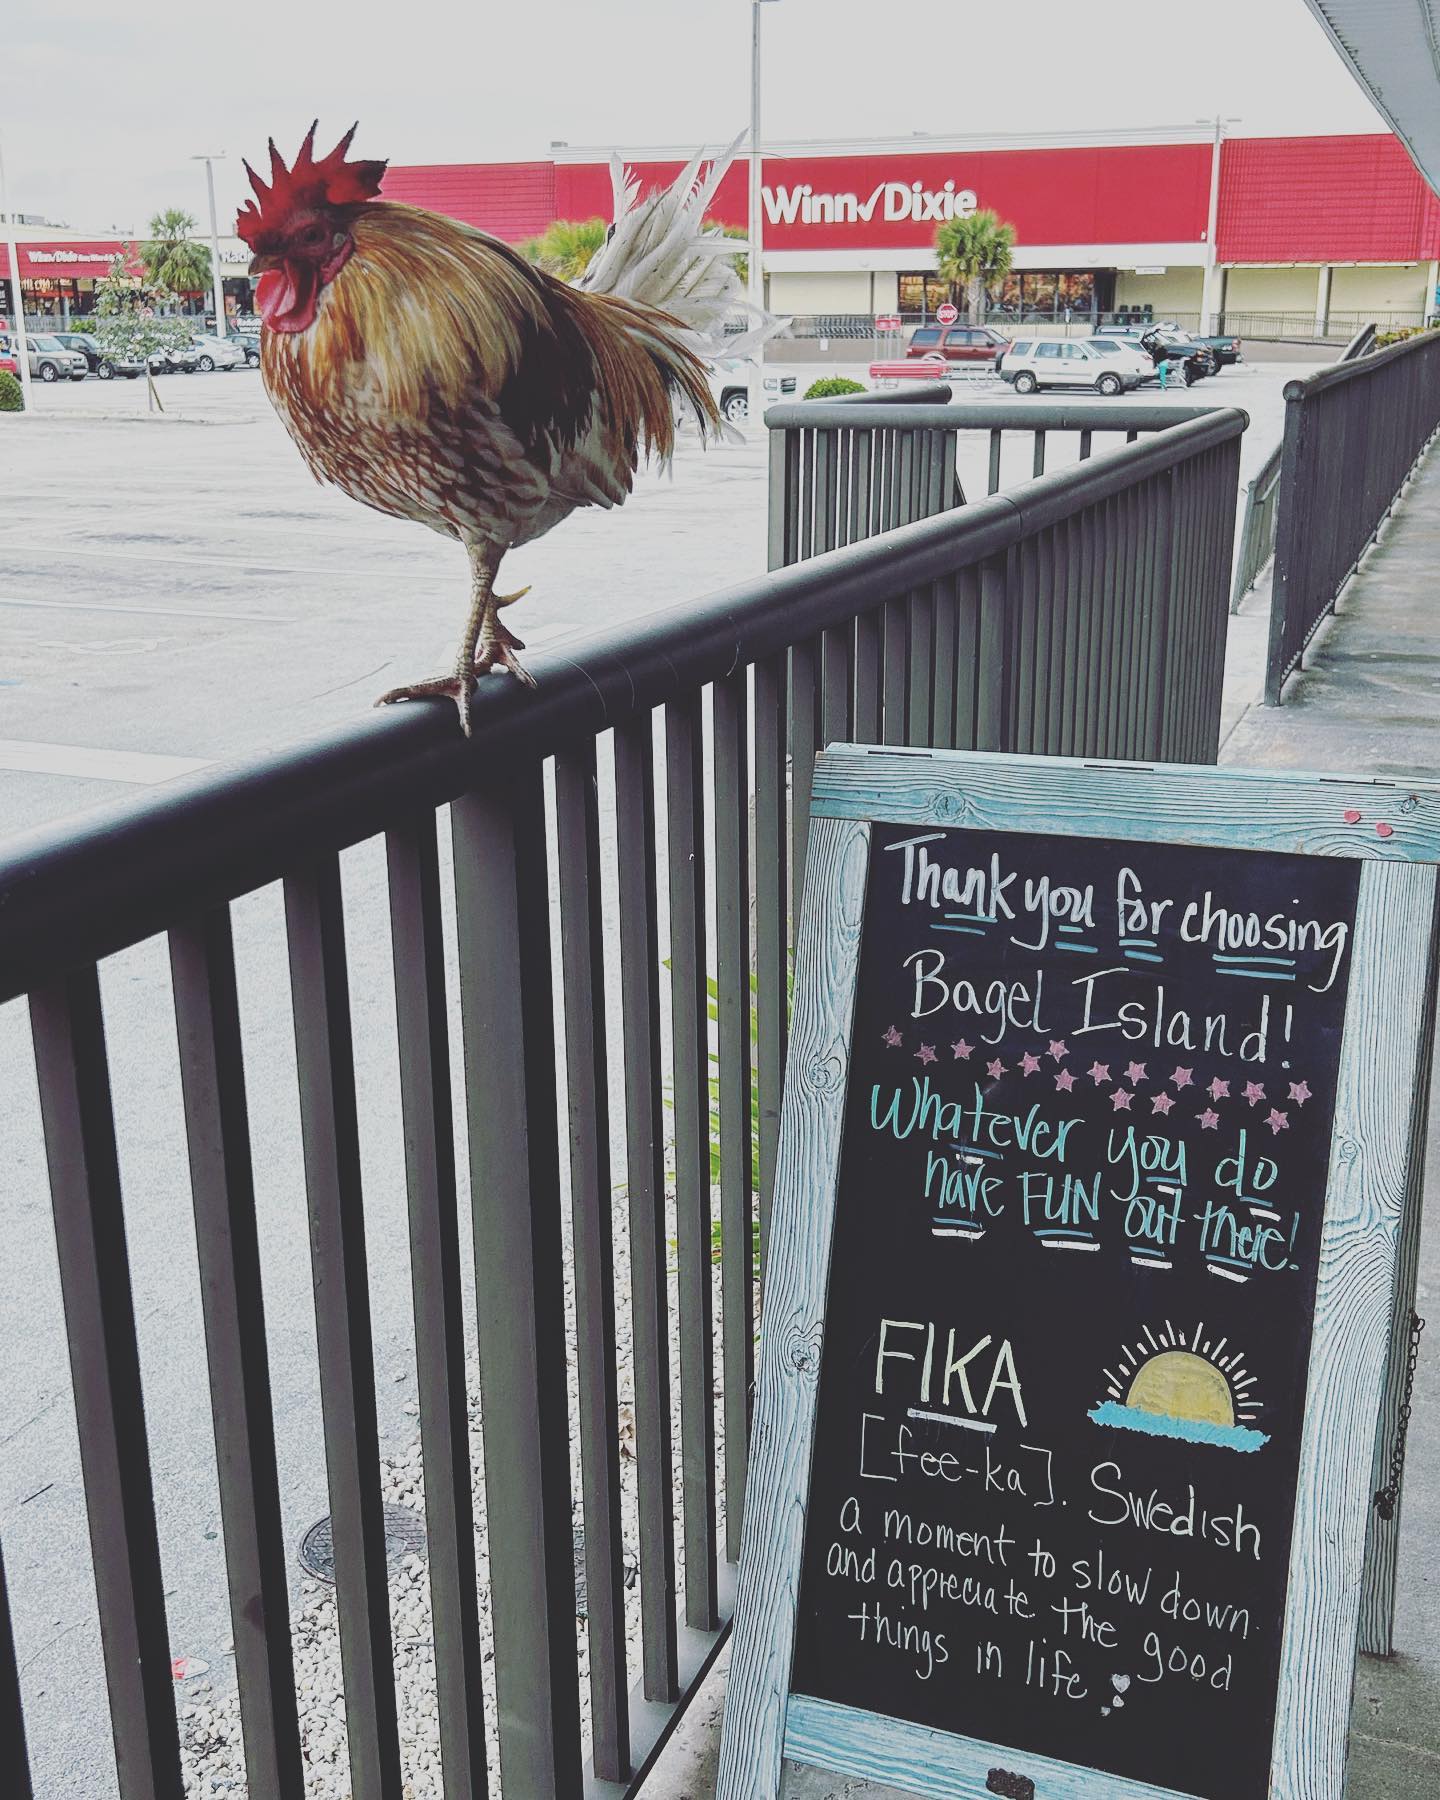 Winn✓Dixie
Winn✓Dixie
STOP
Thank you for choosing
Bagel Island!
Whatever you do
have FUN out there!
FIKA
[fee-ka]. Swedish
a moment to slow down
and appreciate the good
things in life